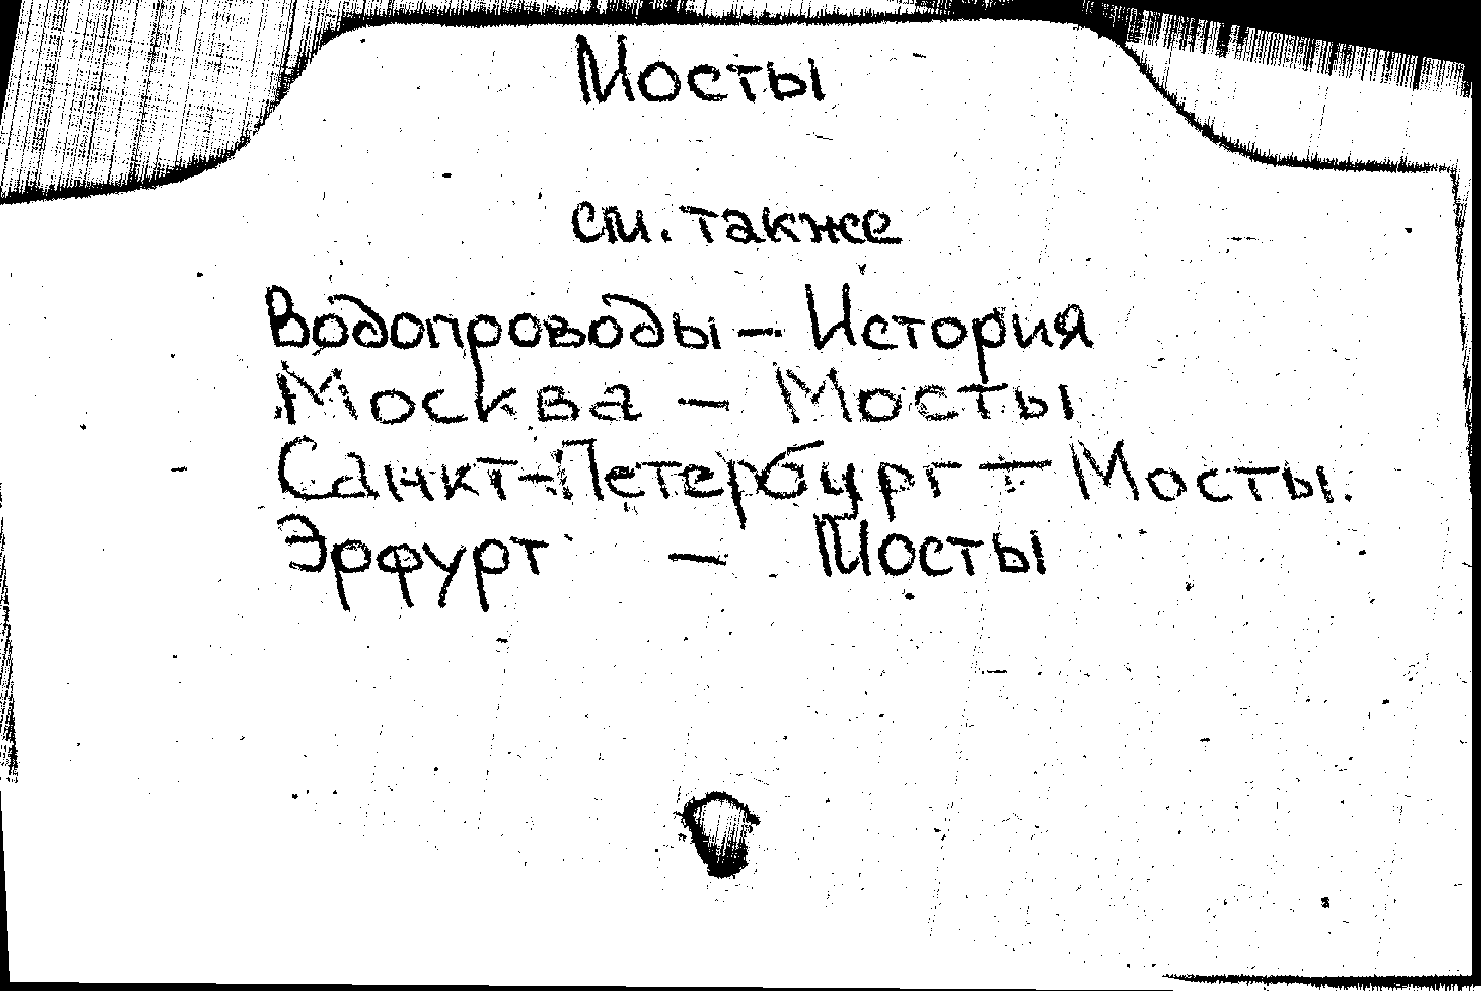 Мосты
см. также
Водопроводы – История
Москва – Мосты
Санкт-Петербург – Мосты.
Эрфурт – Мосты